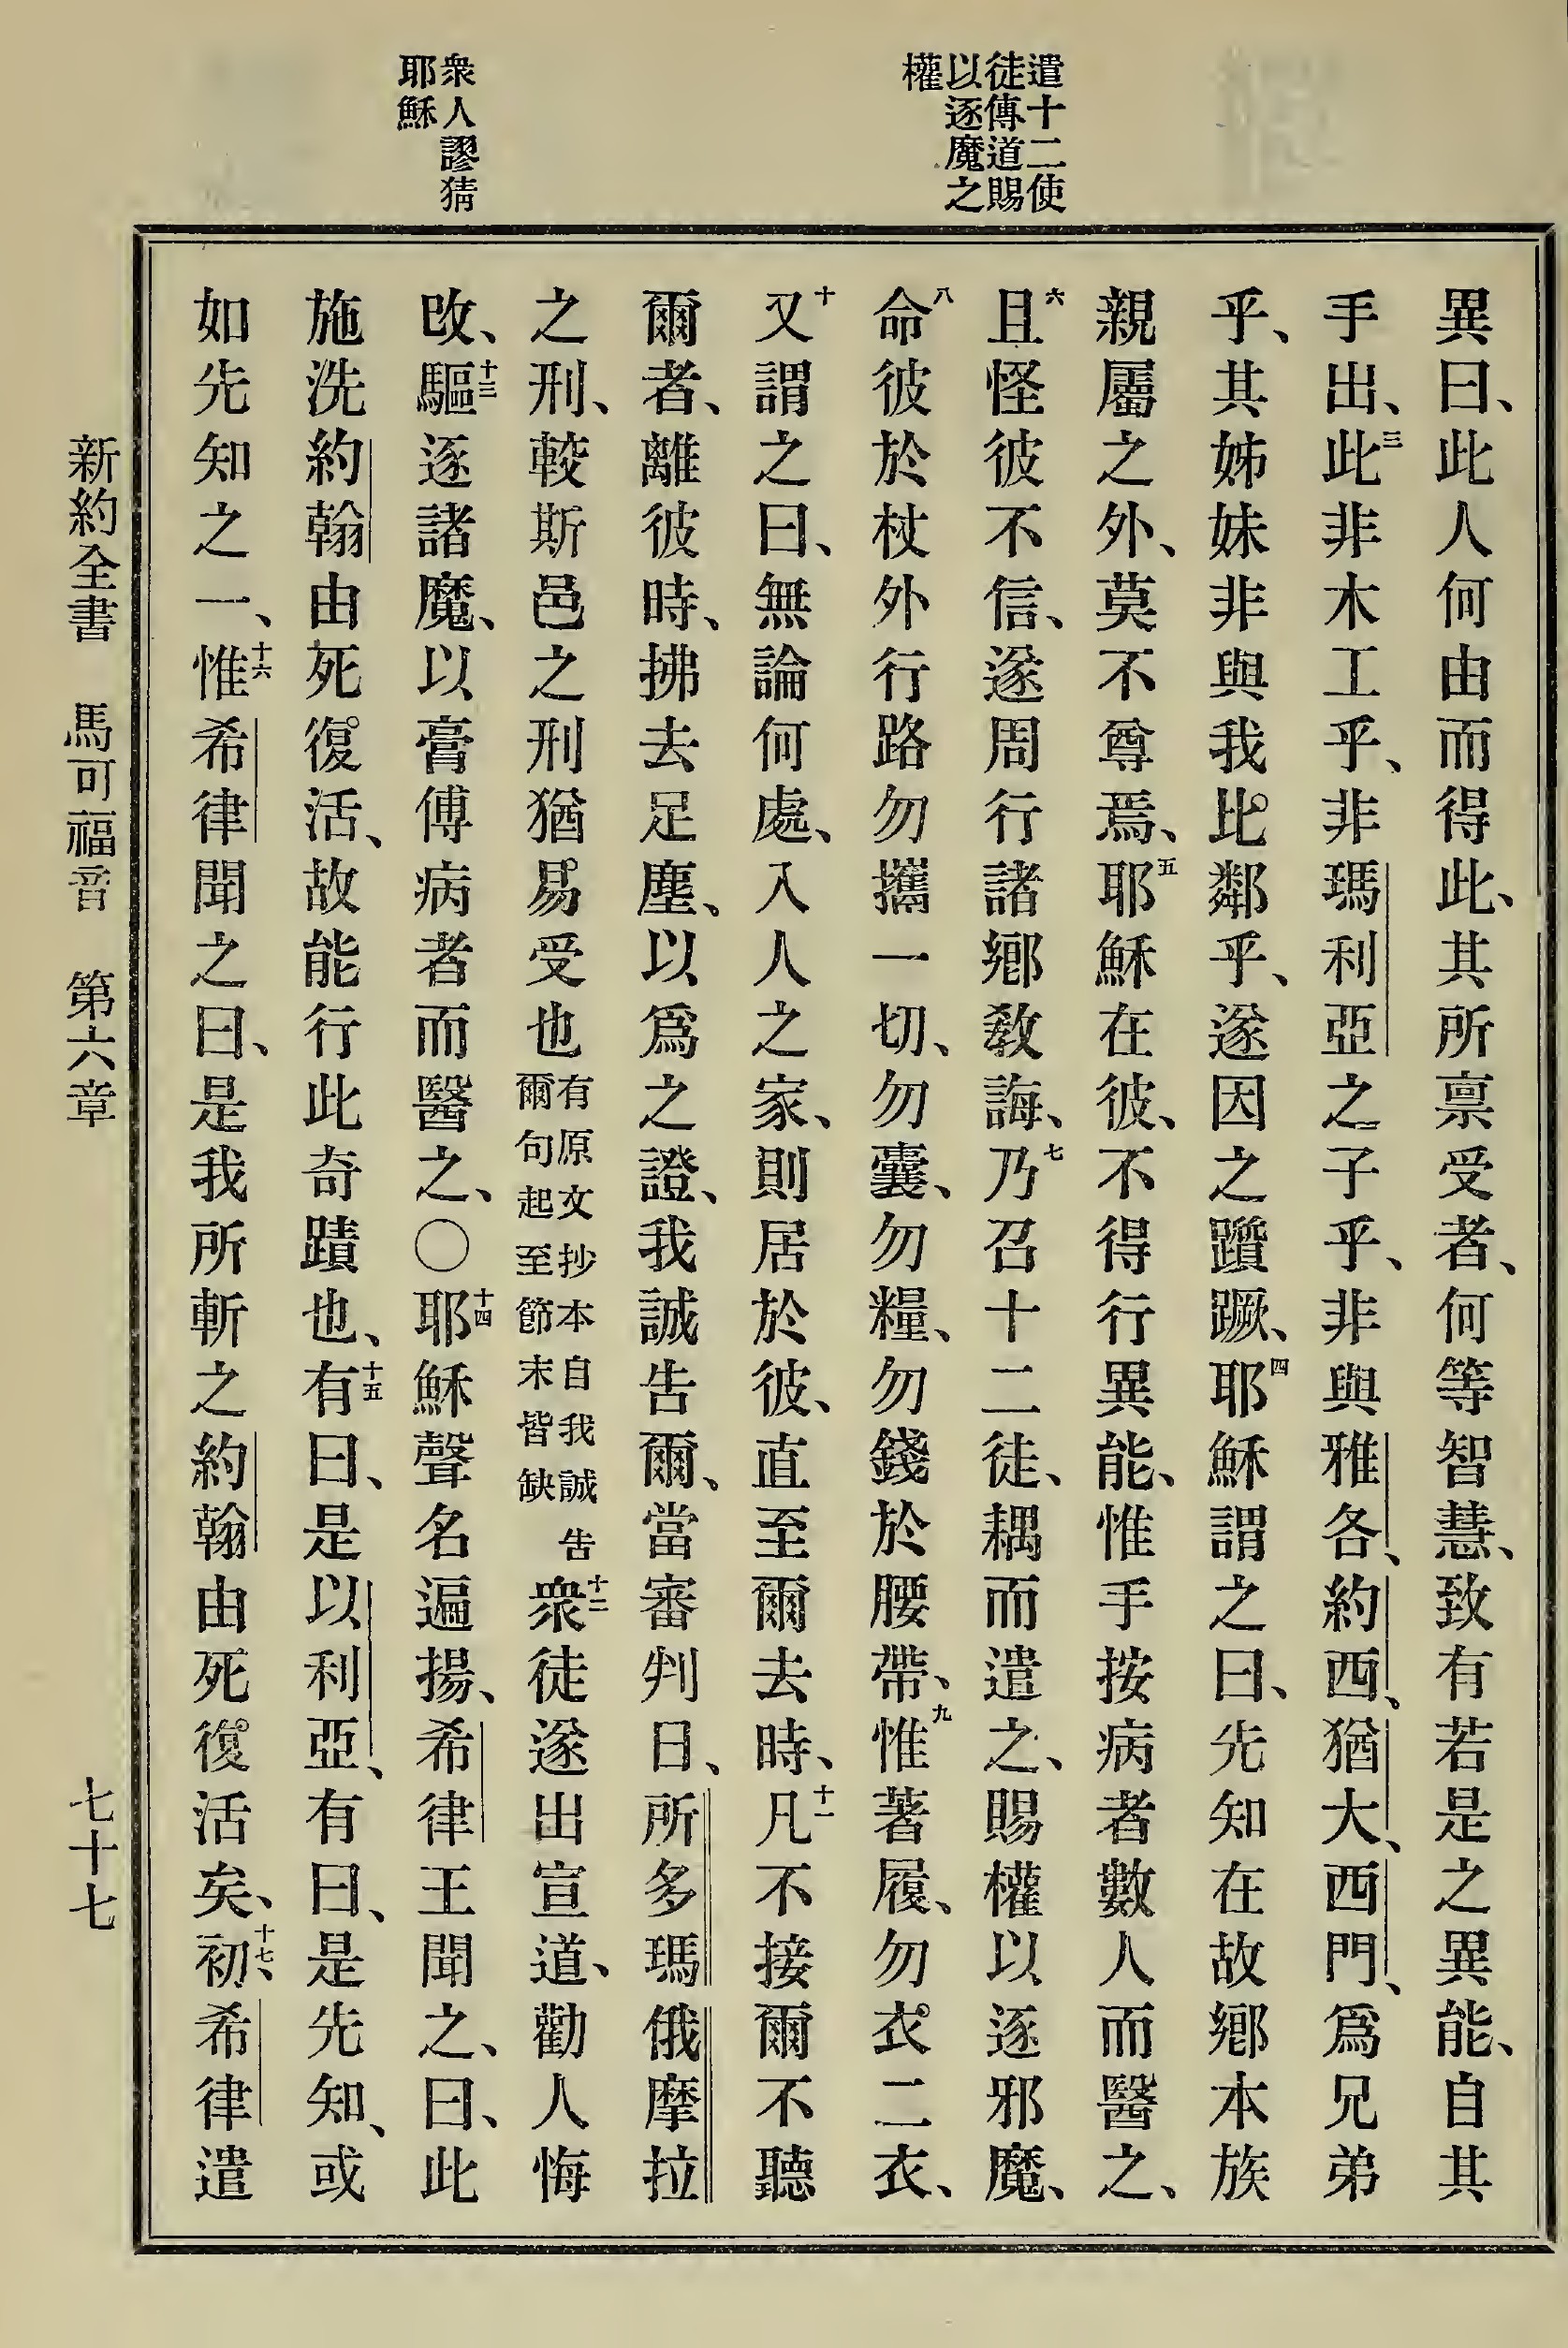 遣十二使
徒傳道賜
以逐魔之
權
衆人謬猜
耶穌
異曰、此人何由而得此、其所稟受者、何等智慧、致有若是之異能、自其
手出、三此非木工乎、非瑪利亞之子乎、非與雅各、約西、猶大、西門、爲兄弟
乎、其姊妹非與我比鄰乎、遂因之躓蹶、四耶穌謂之曰、先知在故鄉本族
親屬之外、莫不尊焉、五耶穌在彼、不得行異能、惟手按病者數人而醫之、
六且怪彼不信、遂周行諸鄉敎誨、七乃召十二徒、耦而遣之、賜權以逐邪魔、
八命彼於杖外行路勿攜一切、勿囊、勿糧、勿錢於腰帶、九惟著履、勿衣二衣、
十又謂之曰、無論何處、入人之家、則居於彼、直至爾去時、十一凡不接爾不聽
爾者、離彼時、拂去足塵、以爲之證、我誠告爾、當審判日、所多瑪俄摩拉
之刑、較斯邑之刑猶易受也有原文抄本自我誠告爾句起至節末皆缺十二衆徒遂出宣道、勸人悔
改、十三驅逐諸魔、以膏傅病者而醫之、〇十四耶穌聲名遍揚、希律王聞之、曰、此
施洗約翰由死復活、故能行此奇蹟也、十五有曰、是以利亞、有曰、是先知、或
如先知之一、十六惟希律聞之曰、是我所斬之約翰由死復活矣、十七初、希律遣
新約全書 馬可福音 第六章 七十七